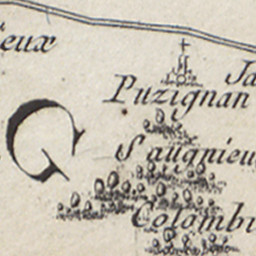 eux
Ja
Puzignan
G
Saugnieu
Colombi